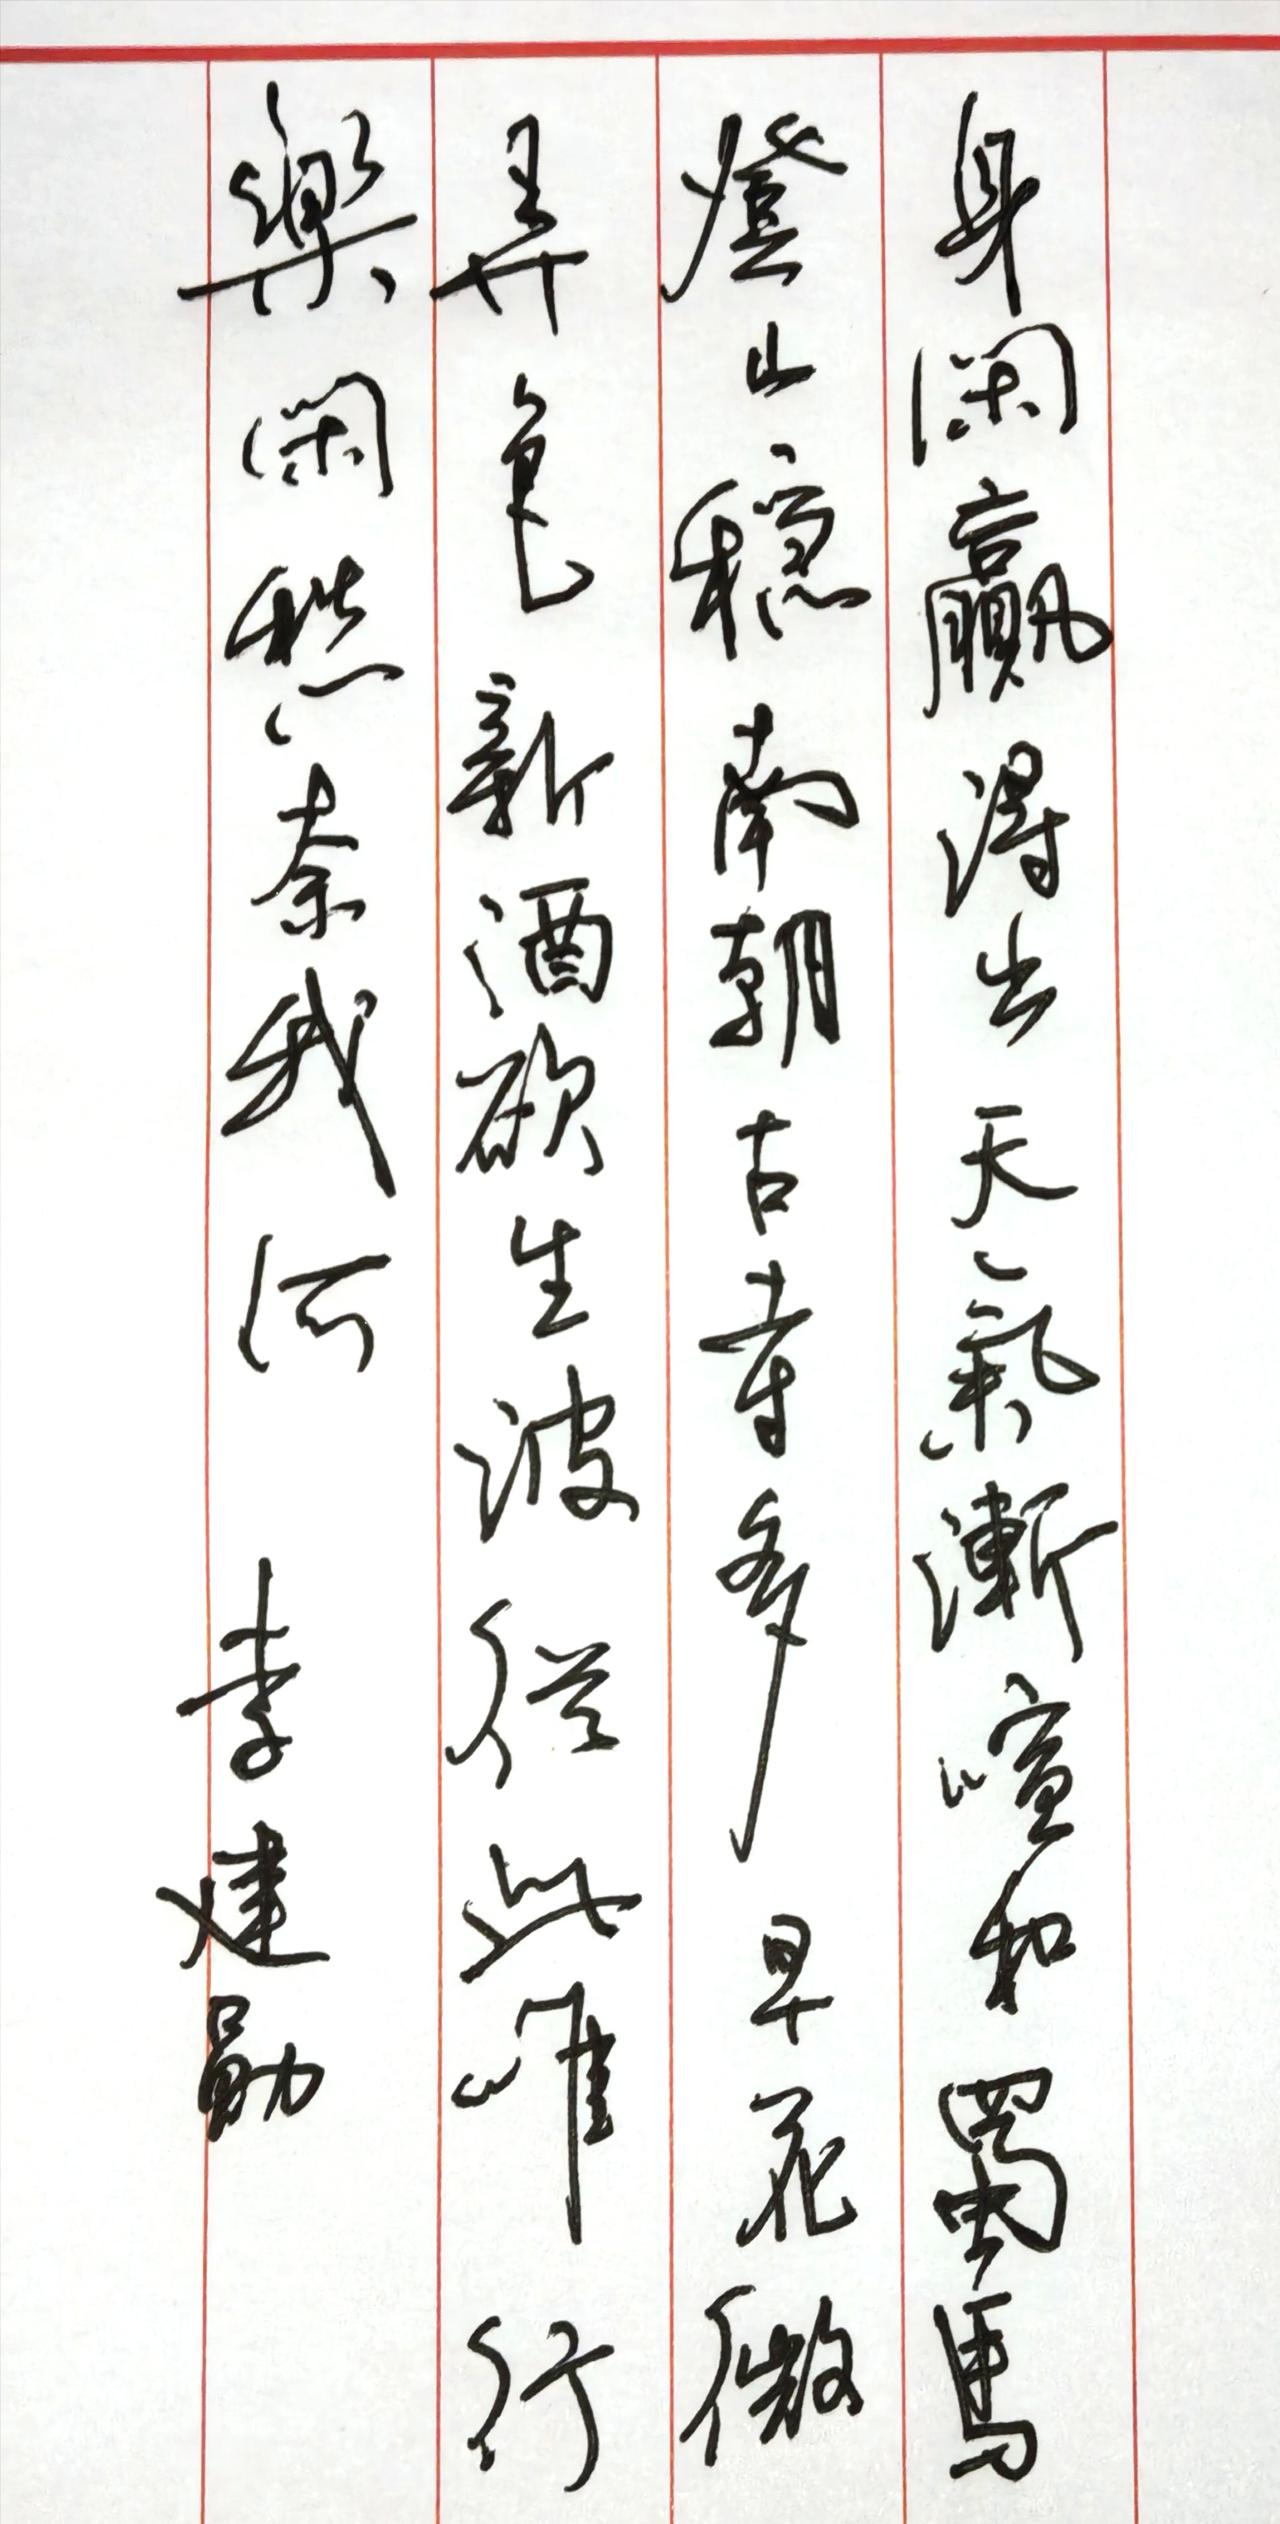 身閑贏得出天氣漸喧和蜀馬
燈山穩南朝古寺多早花微
弄色新酒欲生波從此唯行
樂閑愁奈我何 李建勛